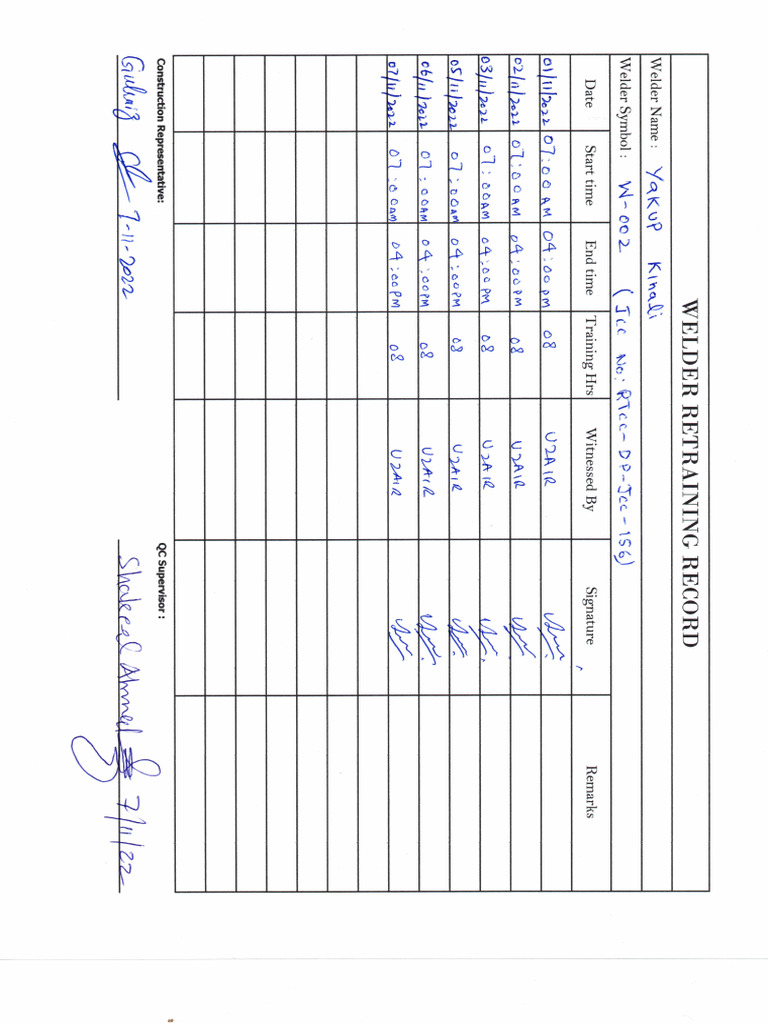 WELDER RETRAINING RECORD
Welder Name : Yakup Kinali
Welder Symbol : W-002 (Jcc No: RTcc-DP-Jcc-156)
Date Start time End time Training Hrs Witnessed By Signature Remarks
01/11/2022 07:00 AM 04:00PM 08 UZAIR
02/11/2022 07:00AM 04:00PM 08 UZAIR
03/11/2022 07:00AM 04:00PM 08 UZAIR
05/11/2022 07:00AM 04:00PM 08 UZAIR
06/11/2022 07:00AM 04:00PM 08 UZAIR
07/11/2022 07:00am 04:00PM 08 UZAIR
Construction Representative: QC Supervisor :
7-11-2022 Shakeel Ahmed 7/11/22